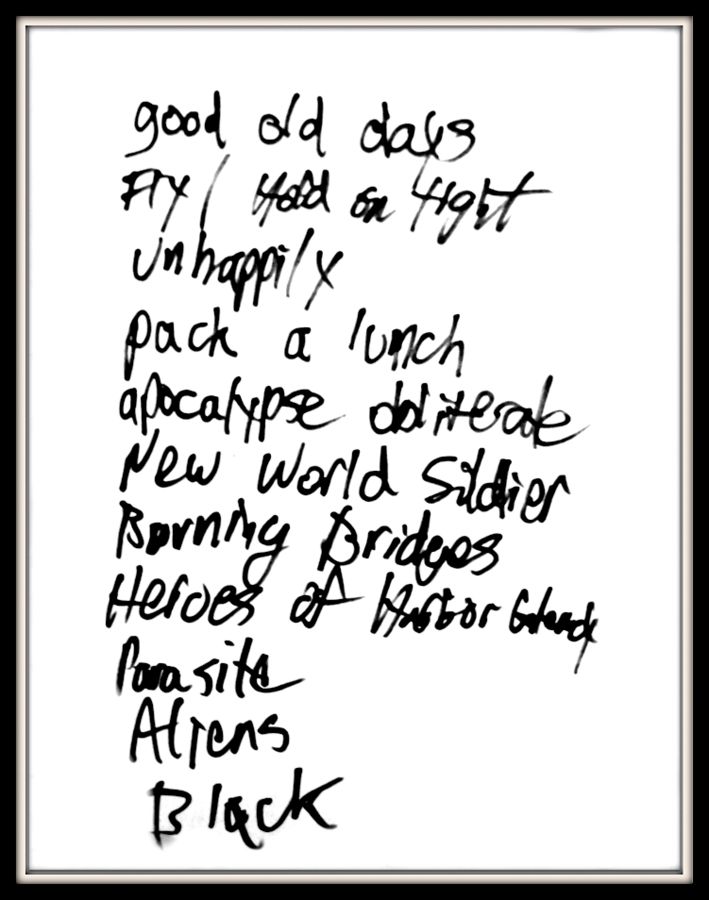 good old days
Fly / Hold on tight
Unhappily
pack a lunch
apocalypse obliterate
New World Soldier
Burning Bridges
Heroes of Harbor
Parasite
Aliens
Black